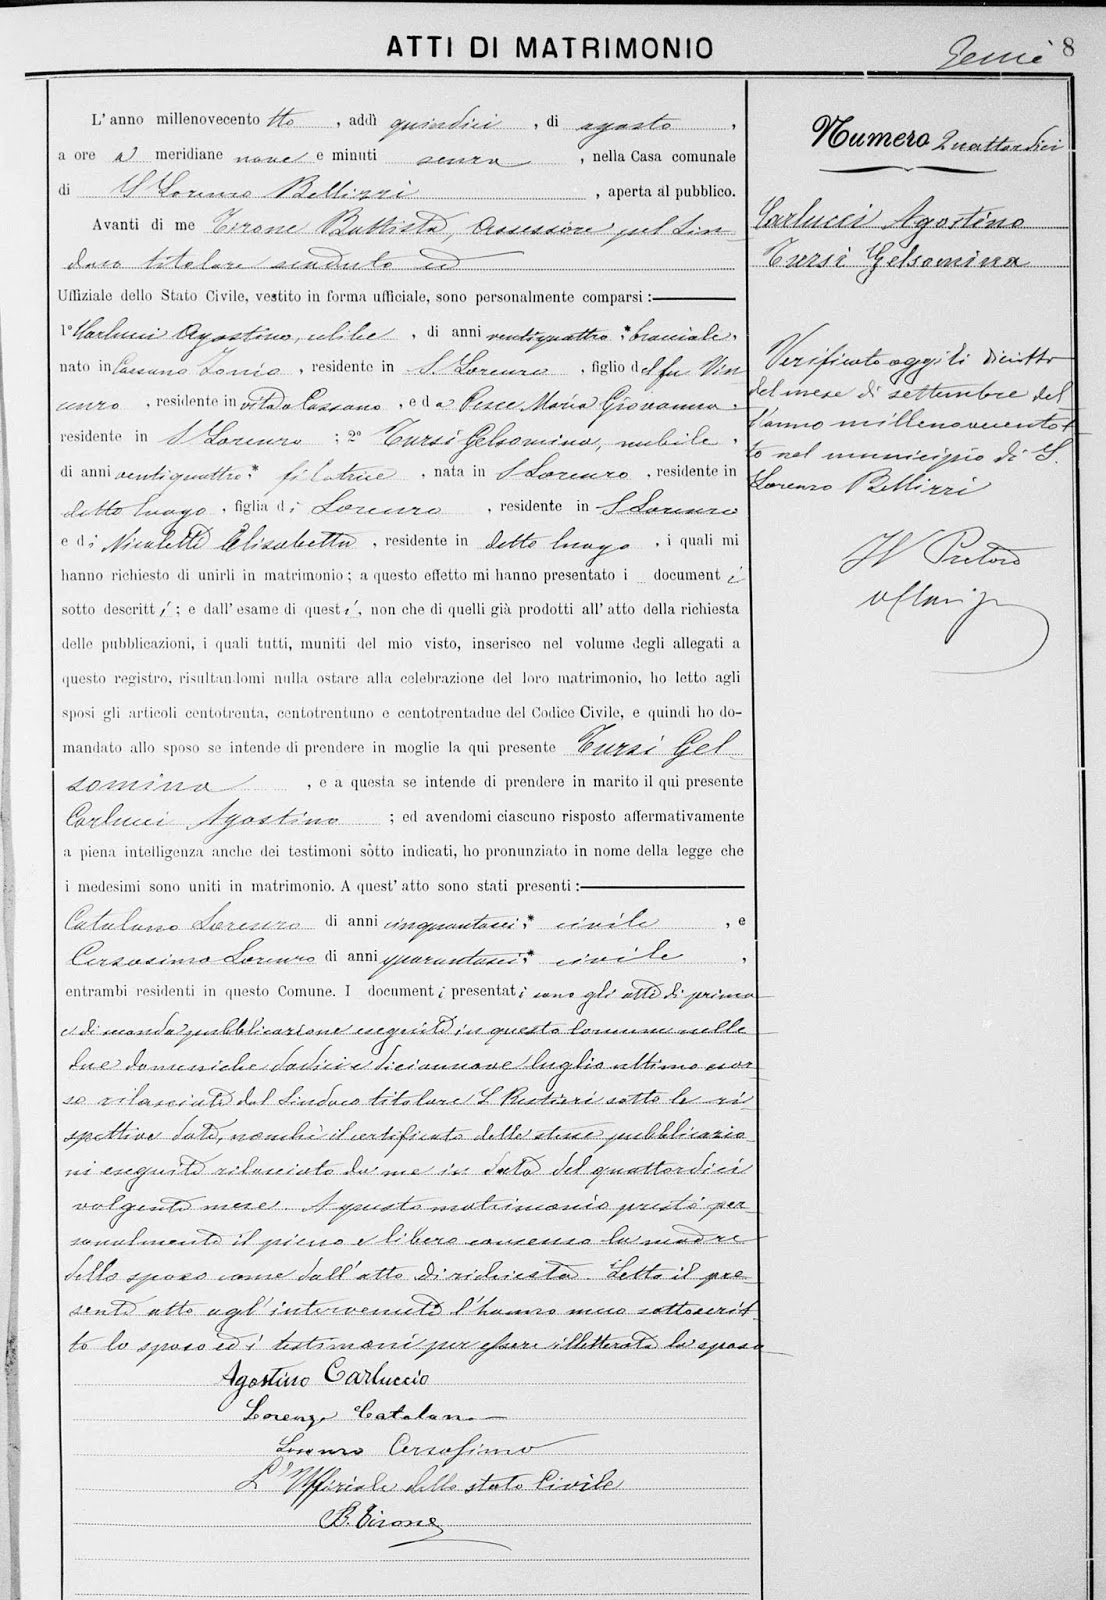 ATTI DI MATRIMONIO
8
Numero Quattordici
Carlucci Agostino
Tursi Gelsomina
Verificato oggi li diciotto
del mese di settembre del
l'anno millenovecentot
to nel municipio di S.
Lorenzo Bellizzi
Il Pretore
L'anno millenovecento tto , addì quindici , di agosto ,
a ore a meridiane nove e minuti senza , nella Casa comunale
di S Lorenzo Bellizzi , aperta al pubblico.
Avanti di me Tirone Battista, Assessore pel Sin-
daco titolare ed
Uffiziale dello Stato Civile, vestito in forma ufficiale, sono personalmente comparsi :
1º Carlucci Agostino, celibe , di anni ventiquattro ,* bracciale ,
nato in Cassano Ionio , residente in S Lorenzo , figlio del fu Vin
cenzo , residente in vita a Cassano , e da Pesce Maria Giovanna ,
residente in S Lorenzo ; 2º Tursi Gelsomina, nubile ,
di anni ventiquattro ,* filatrice , nata in S Lorenzo , residente in
detto luogo , figlia di Lorenzo , residente in S Lorenzo
e di Nicoletti Elisabetta , residente in detto luogo , i quali mi
hanno richiesto di unirli in matrimonio ; a questo effetto mi hanno presentato i documenti
sotto descritti ; e dall' esame di questi , non che di quelli già prodotti all' atto della richiesta
delle pubblicazioni, i quali tutti, muniti del mio visto, inserisco nel volume degli allegati a
questo registro, risultandomi nulla ostare alla celebrazione del loro matrimonio, ho letto agli
sposi gli articoli centotrenta, centotrentuno e centotrentadue del Codice Civile, e quindi ho do-
mandato allo sposo se intende di prendere in moglie la qui presente Tursi Gel
somina , e a questa se intende di prendere in marito il qui presente
Carlucci Agostino ; ed avendomi ciascuno risposto affermativamente
a piena intelligenza anche dei testimoni sòtto indicati, ho pronunziato in nome della legge che
i medesimi sono uniti in matrimonio. A quest' atto sono stati presenti :
Catalano Lorenzo di anni cinquantasei ,* civile , e
Cersosimo Lorenzo di anni quarantasei ,* civile ,
entrambi residenti in questo Comune. I documenti presentati sono gli atti di prima
e di seconda pubblicazione eseguite in questo Comune nelle
due domeniche dodici e diciannove luglio ultimo scor
so rilasciate dal Sindaco titolare L Restieri sotto le ri
spettive date, nonchè il certificato delle stesse pubblicazio
ni eseguite rilasciato da me in data del quattordici
volgente mese. A questo matrimonio prestò per
sonalmente il pieno e libero consenso la madre
dello sposo come dall'atto di richiesta. Letto il pre
sente atto agl'intervenuti l'hanno meco sottoscrit
to lo sposo ed i testimoni per essere illetterata la sposa
Agostino Carluccio
Lorenzo Catalano
Lorenzo Cersosimo
L'Uffiziale dello stato Civile
B. Tirone